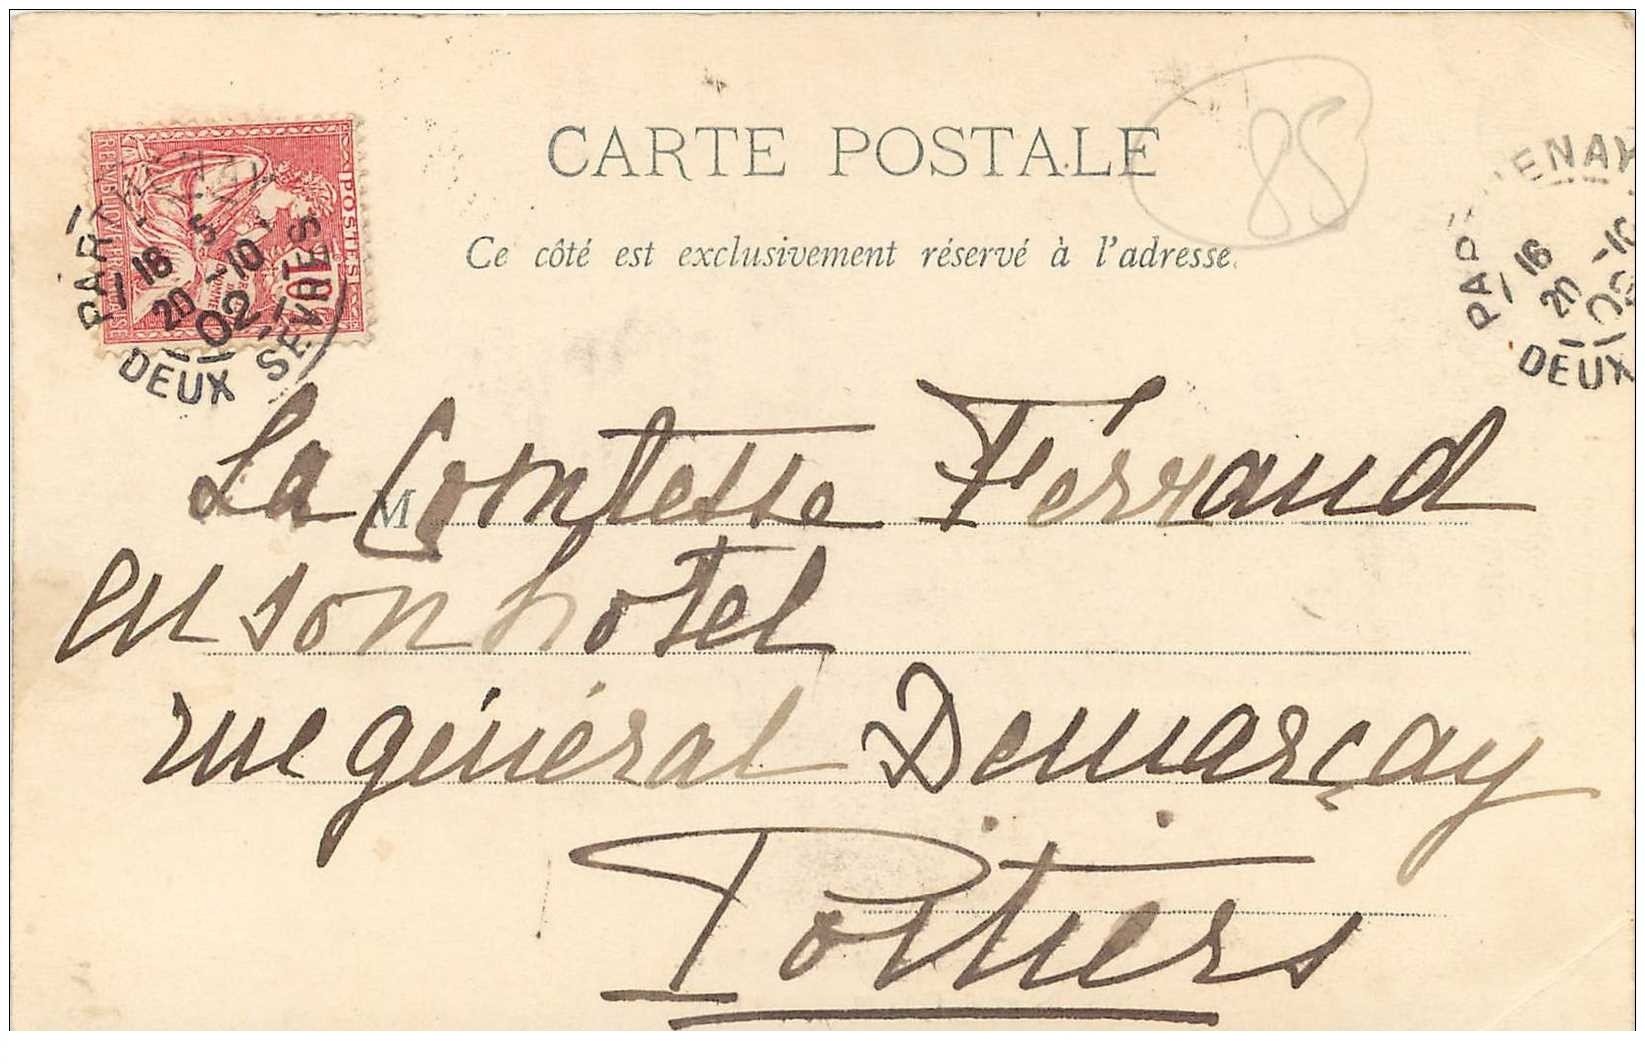 CARTE POSTALE
85
Ce côté est exclusivement réservé à l'adresse.
POSTES
10
RÉPUBLIQUE FRANÇAISE
PARTHENAY
16 5
20 -10
02
DEUX SEVRES
PARTHENAY
16
20 -10
02
DEUX
M
La Comtesse Férraud
en son hotel
rue général Demarçay
Poitiers